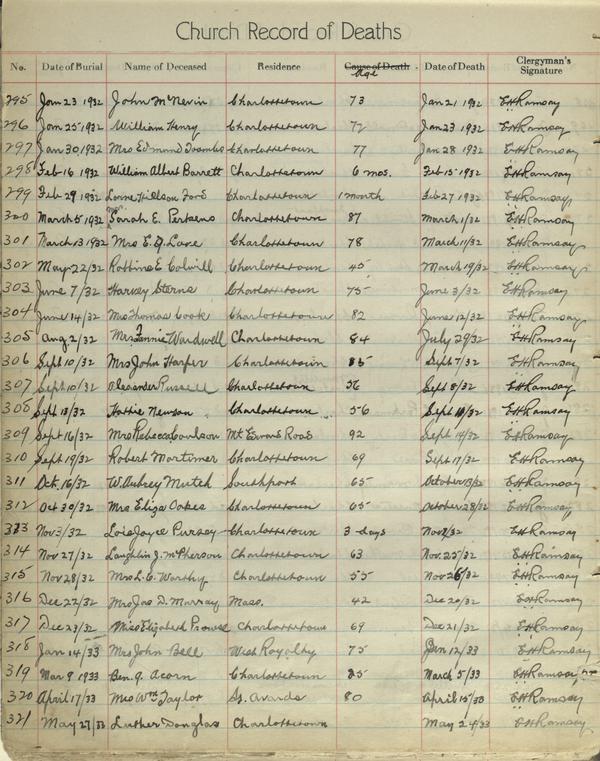 Church Record of Deaths
No. Date of Burial Name of Deceased Residence Cause of Death Age Date of Death Clergyman's Signature
295 Jan 23 1932 John McNevin Charlottetown 73 Jan 21 1932 EHRamsay
296 Jan 25 1932 William Henry Charlottetown 72 Jan 23 1932 EHRamsay
297 Jan 30, 1932 Mrs Edmund Toombs Charlottetown 77 Jan 28 1932 EHRamsay
298 Feb 16 1932 William Albert Barrett Charlottetown 6 mos. Feb 15 1932 EHRamsay
299 Feb 29 1932 Lorne Hillson Ford Charlottetown 1 month Feb 27 1932 EHRamsay
320 March 5 1932 Sarah E. Perkins Charlottetown 87 March 1/32 EHRamsay
301 March 13 1932 Mrs E. J. Lane Charlottetown 78 March 11/32 EHRamsay
302 May 22/32 E Colwill Charlottetown 45 March 19/32 EHRamsay
303 June 7/32 Harvey Sterns Charlottetown 75 June 3/32 EHRamsay
304 June 14/32 Mrs Thomas Cook Charlottetown 82 June 12/32 EHRamsay
305 Aug 2/32 Mrs Fannie Wardwell Charlottetown 84 July 29/32 EHRamsay
306 Sept 10/32 Mrs John Harper Charlottetown 85 Sept 7/32 EHRamsay
307 Sept 10/32 Alexander Russell Charlottetown 56 Sept 8/32 EHRamsay
308 Sept 13/32 Hattie Newson Charlottetown 56 Sept /32 EHRamsay
309 Sept 16/32 Mrs Rebecca Coulson Mt Edward Road 92 Sept 14/32 EHRamsay
310 Sept 19/32 Robert Mortimer Charlottetown 69 Sept 17/32 EHRamsay
311 Oct. 16/32 W. Aubrey Mutch Southport 65 October 13/32 EHRamsay
312 Oct 30/32 Mrs Eliza Oakes Charlottetown 65 October 28/32 EHRamsay
313 Nov 3/32 Lois Joyce Pursey Charlottetown 3 days Nov /32 EHRamsay
314 Nov 27/32 Laughlin J. McPherson Charlottetown 63 Nov. 25/32 EHRamsay
315 Nov 28/32 Mrs L. C. Worthy Charlottetown 55 Nov 26/32 EHRamsay
316 Dec 22/32 Mrs Jas D. Murray Mass. 42 Dec 20/32 EHRamsay
317 Dec 23/32 Miss Elizabeth Prowse Charlottetown 69 Dec 21/32 EHRamsay
318 Jan 14/33 Mrs John Bell West Royalty 75 Jan 12/33 EHRamsay
319 Mar 9 1933 Benj. Acorn Charlottetown 85 March 5/33 EHRamsay
320 April 17/33 Mrs Wm Taylor St. Avards 80 April 15/33 EHRamsay
321 May 27/33 Luther Douglas Charlottetown May 24/33 EHRamsay